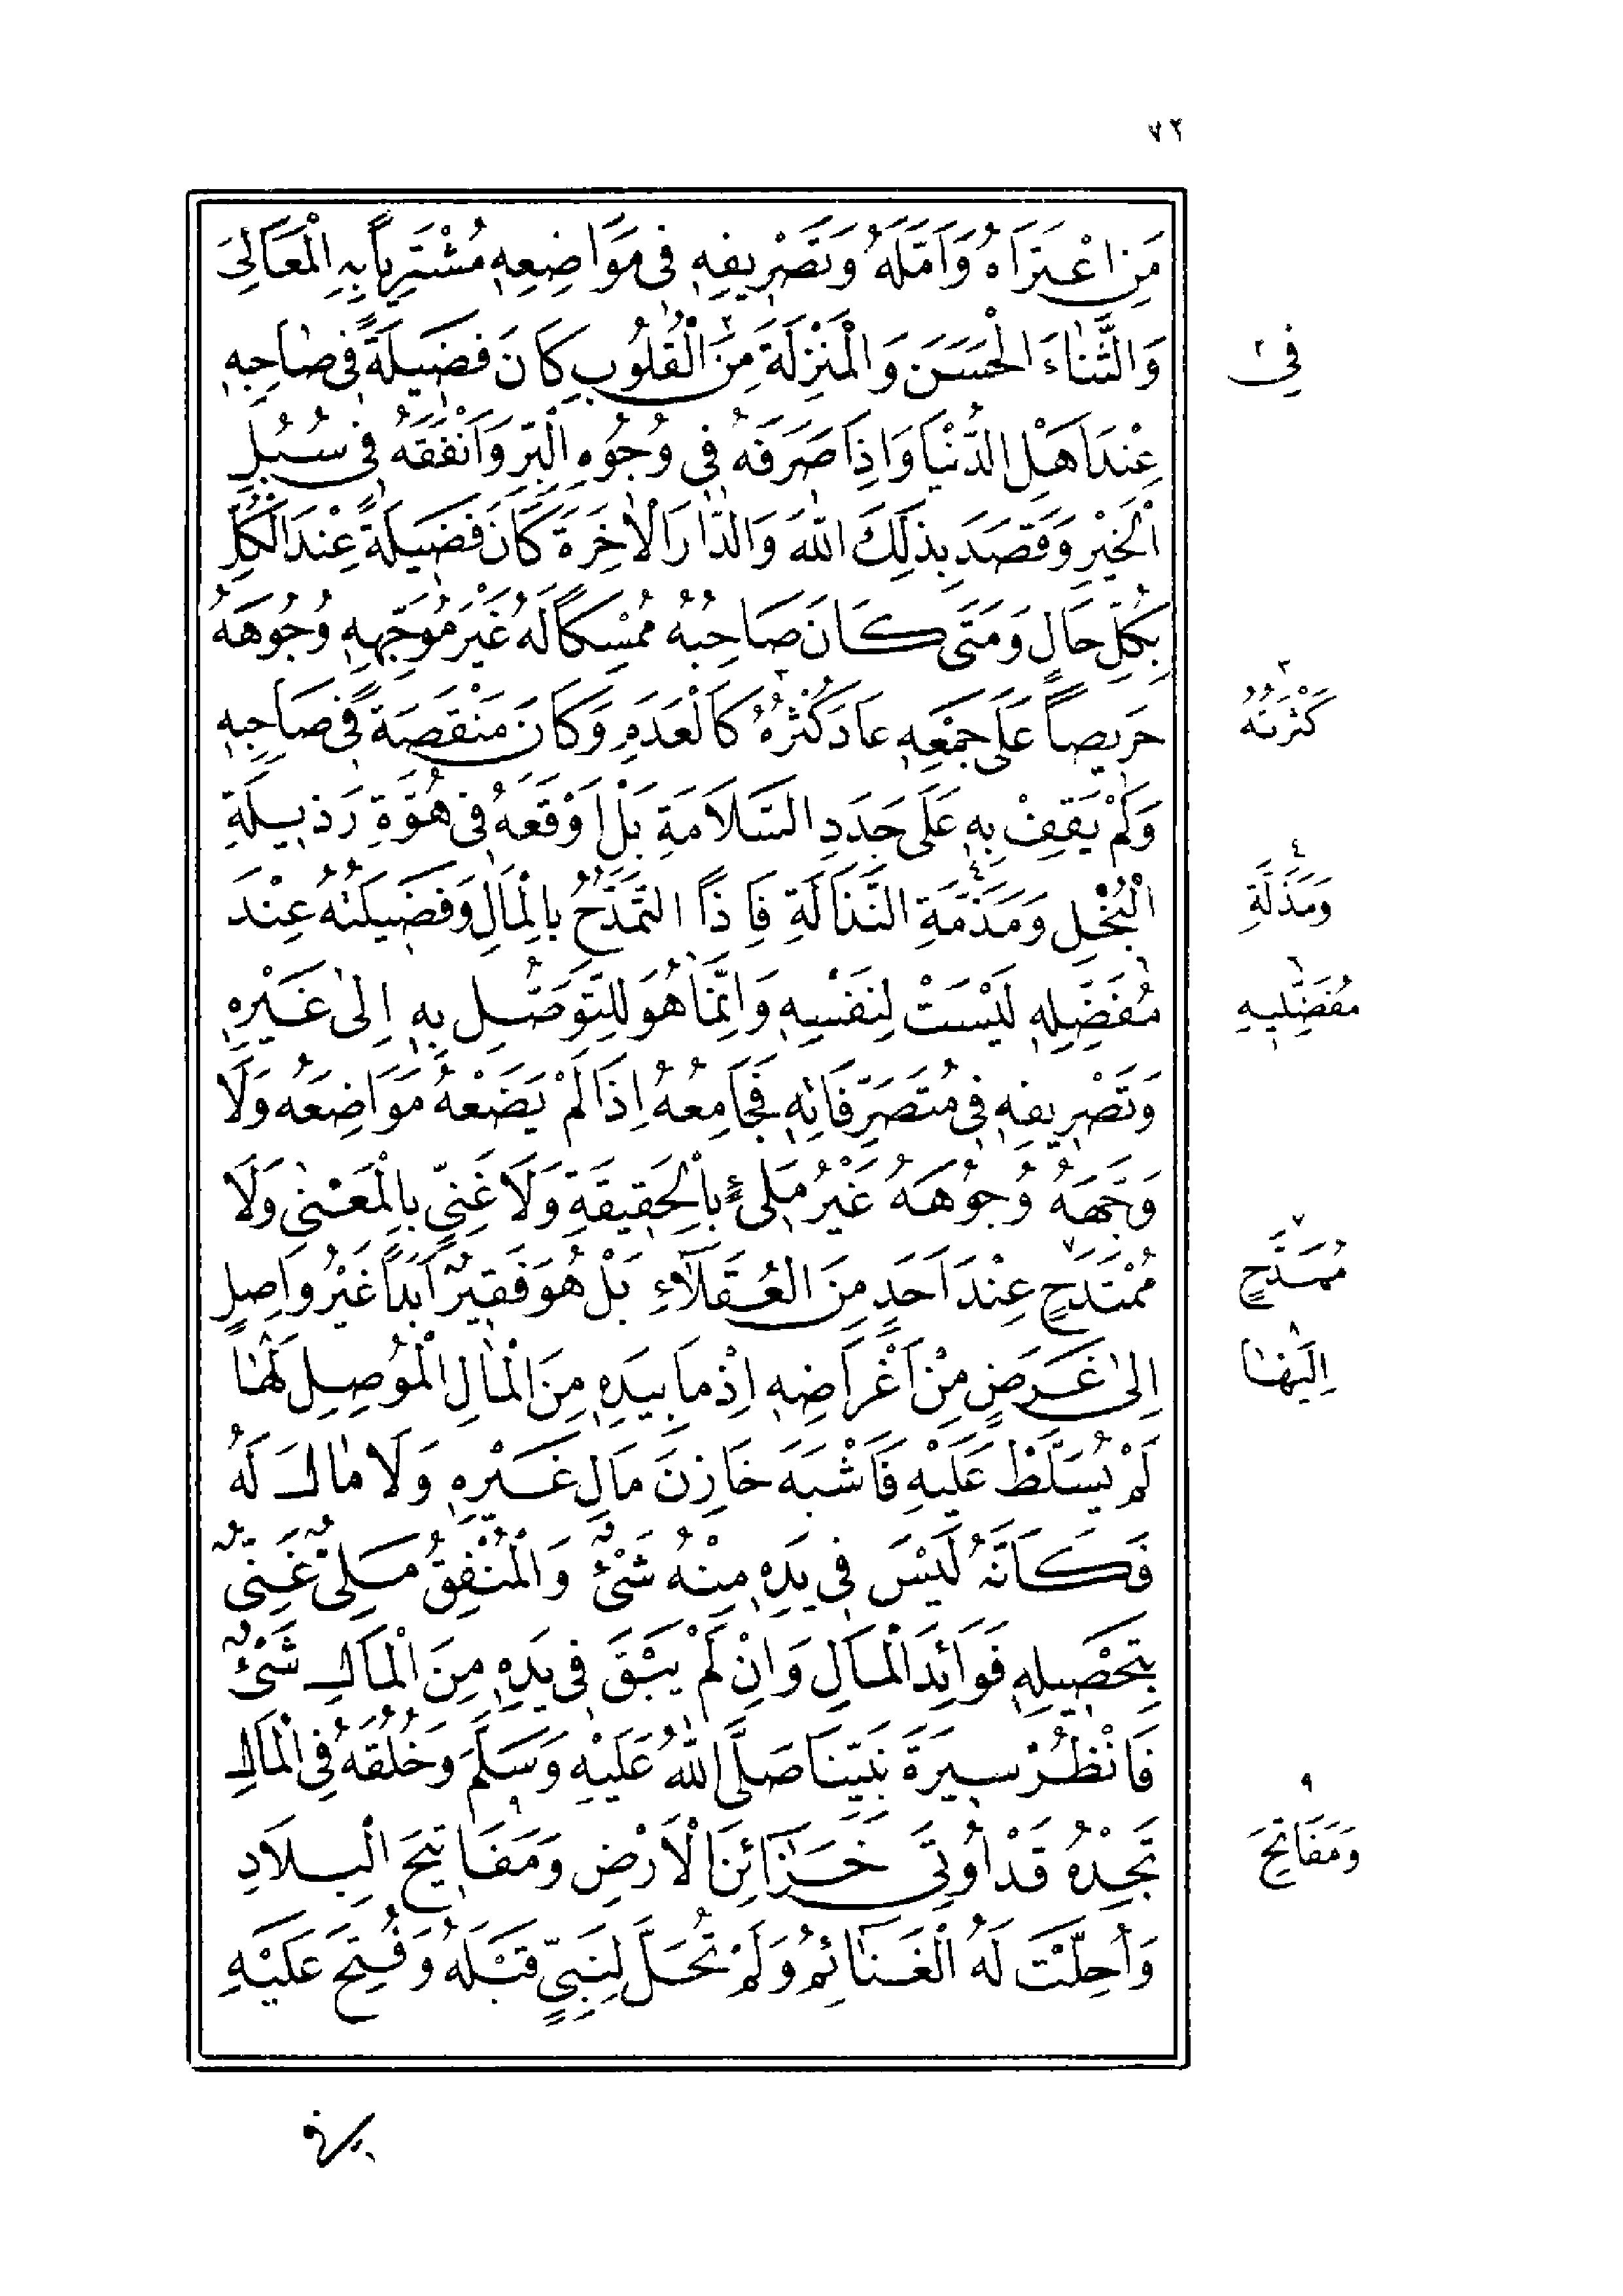 ٧٢
مَنِ اعْتَرَاهُ وَاَمَّلَهُ وَتَصْرِيفِهِ فِي مَوَاضِعِهِ مُشْتَرِياً بِهِ الْمَعَالِيَ
وَالثَّنَاءَ الْحَسَنَ وَالْمَنْزِلَةَ مِنَ٢ الْقُلُوبِ كَانَ فَضِيلَةً فِي صَاحِبِهِ
فِي٢
عِنْدَ اَهْلِ الدُّنْيَا وَاِذَا صَرَفَهُ فِي وُجُوهِ الْبِرِّ وَاَنْفَقَهُ فِي سُبُلِ
الْخَيْرِ وَقَصَدَ بِذَلِكَ اللهَ وَالدَّارَ الْاٰخِرَةَ كَانَ فَضِيلَةً عِنْدَ الْكُلِّ
بِكُلِّ حَالٍ وَمَتَى كَانَ صَاحِبُهُ مُمْسِكاً لَهُ غَيْرَ مُوَجِّهِهِ وُجُوهَهُ
حَرِيصاً عَلَى جَمْعِهِ عَادَ كُثْرُهُ٣ كَالْعَدَمِ وَكَانَ مَنْقَصَةً فِي صَاحِبِهِ
كَثْرَتُهُ٣
وَلَمْ يَقِفْ بِهِ عَلَى جَدَدِ السَّلَامَةِ بَلْ اَوْقَعَهُ فِي هُوَّةِ رَذِيلَةِ
الْبُخْلِ وَمَذَمَّةِ٤ النَّذَالَةِ فَاِذاً التَّمَدُّحُ بِالْمَالِ وَفَضِيلَتُهُ عِنْدَ
وَمَذَلَّةِ٤
مُفَضِّلِهِ٦ لَيْسَتْ لِنَفْسِهِ وَاِنَّمَا هُوَ لِلتَّوَصُّلِ بِهِ اِلٰى غَيْرِهِ
مُفَضِّلِيهِ٦
وَتَصْرِيفِهِ فِي مُتَصَرَّفَاتِهِ فَجَامِعُهُ اِذَا لَمْ يَضَعْهُ مَوَاضِعَهُ وَلَا
وَجَّهَهُ وُجُوهَهُ غَيْرُ مَلِيءٍ بِالْحَقِيقَةِ وَلَا غَنِيٍّ بِالْمَعْنٰى وَلَا
مُمْتَدَحٍ٧ عِنْدَ اَحَدٍ مِنَ الْعُقَلَاءِ بَلْ هُوَ فَقِيرٌ اَبَداً غَيْرُ وَاصِلٍ
مُمَدَّحٍ٧
اِلٰى غَرَضٍ مِنْ اَغْرَاضِهِ اِذْ مَا بِيَدِهِ مِنَ الْمَالِ الْمُوصِلِ لَهَا٨
اِلَيْهَا٨
لَمْ يُسَلَّطْ عَلَيْهِ فَاَشْبَهَ خَازِنَ مَالِ غَيْرِهِ وَلَا مَالَ لَهُ
فَكَاَنَّهُ لَيْسَ فِي يَدِهِ مِنْهُ شَيْءٌ وَالْمُنْفِقُ مَلِيٌّ غَنِيٌّ
بِتَحْصِيلِهِ فَوَائِدَ الْمَالِ وَاِنْ لَمْ يَبْقَ فِي يَدِهِ مِنَ الْمَالِ شَيْءٌ
فَانْظُرْ سِيرَةَ نَبِيِّنَا صَلَّى اللهُ عَلَيْهِ وَسَلَّمَ وَخُلُقَهُ فِي الْمَالِ
تَجِدْهُ قَدْ اُوتِيَ خَزَائِنَ الْاَرْضِ وَمَفَاتِيحَ٩ الْبِلَادِ
وَمَفَاتِحَ٩
وَاُحِلَّتْ لَهُ الْغَنَائِمُ وَلَمْ تُحَلَّ لِنَبِيٍّ قَبْلَهُ وَفُتِحَ عَلَيْهِ